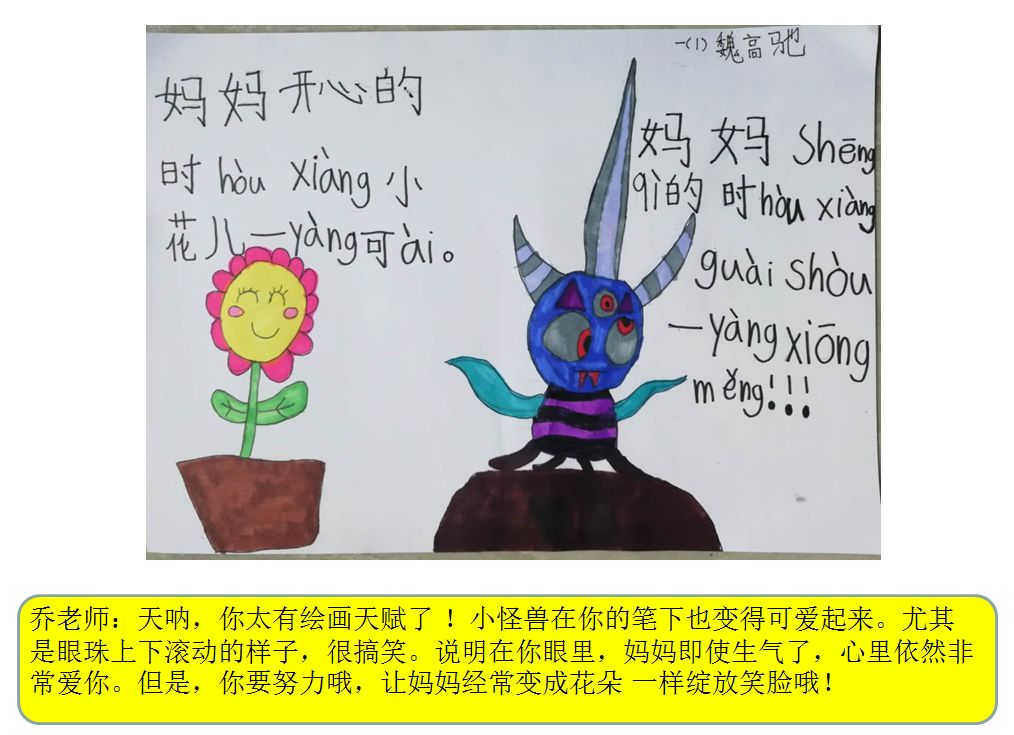 一(1) 魏高驰
妈妈开心的
时hòu xiàng小
花儿一yàng可ài。
妈妈 Shēng
qì的 时hòu xiàng
guài Shòu
一yàng xiōng
měng!!!
乔老师：天呐，你太有绘画天赋了！小怪兽在你的笔下也变得可爱起来。尤其
是眼珠上下滚动的样子，很搞笑。说明在你眼里，妈妈即使生气了，心里依然非
常爱你。但是，你要努力哦，让妈妈经常变成花朵 一样绽放笑脸哦！